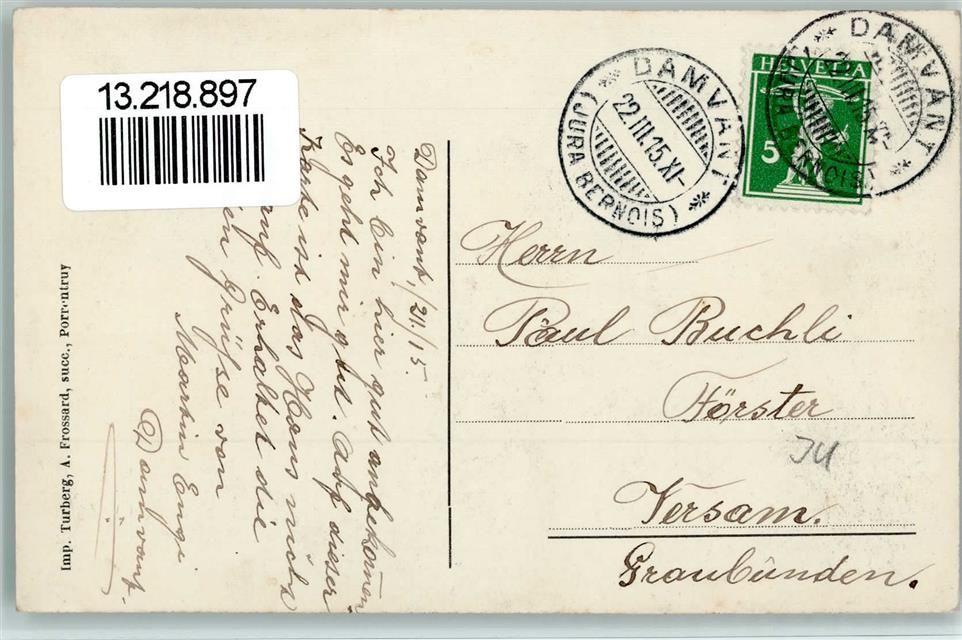 13.218.897
DAMVANT
22.III.15.XI-
(JURA BERNOIS)
HELVETIA
5
DAMVANT
(JURA BERNOIS)
Damvant, /21./15.
Ich bin hier gut ankekom̅en
Es geht mir gut. Auf dieser
Karte ist das Haus nicht
Erhaltet die
Grüsse von
Martin Engi
Damvant.
Herrn
Paul Buchli
Förster
JU
Versam.
Graubünden.
Imp. Turberg, A. Frossard, succ., Porrentruy